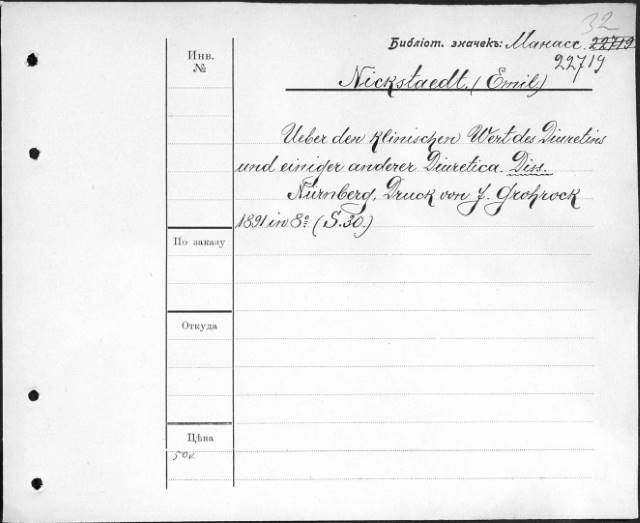 32
Библіот. значекъ: Манасс. 22719
22719
Инв.
№
Nickstaedt, (Emil)
Ueber den klinischen Wert des Diuretins
und einiger anderer Diuretica. Diss.
Nürnberg, Druck von J. Grohrock
1891 in 8º (S. 30.)
По заказу
Откуда
Цѣна
50к